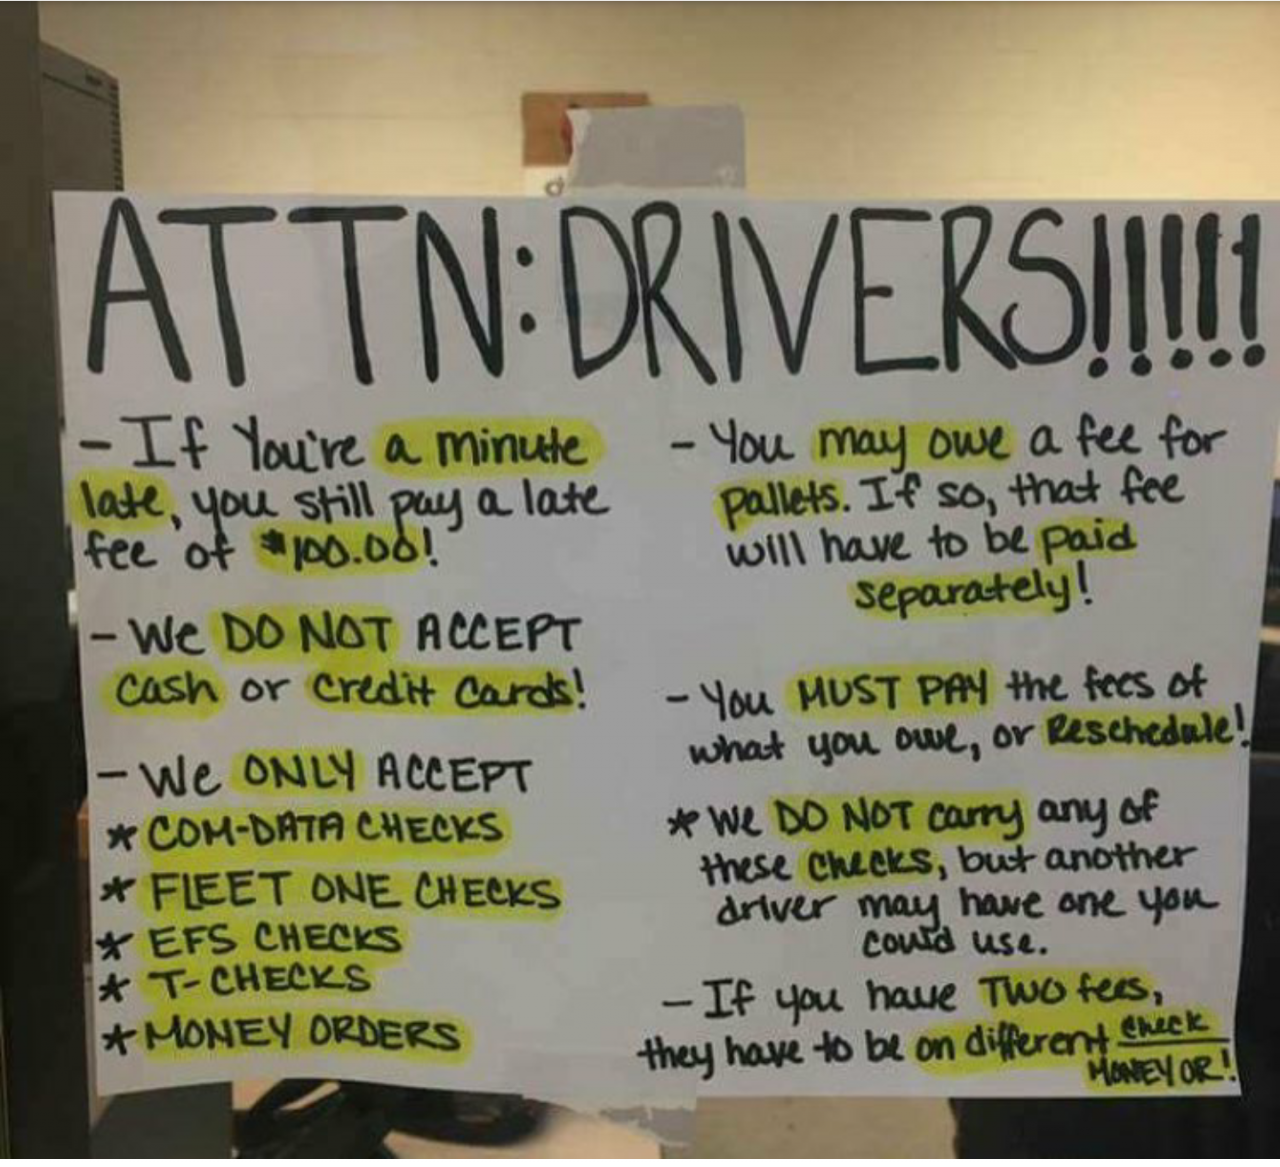 ATTN:DRIVERS!!!!!
- If You're a minute
late, you still pay a late
fee of $100.00!
- We DO NOT ACCEPT
Cash or Credit Cards!
- We ONLY ACCEPT
* COM-DATA CHECKS
* FLEET ONE CHECKS
* EFS CHECKS
* T-CHECKS
* MONEY ORDERS
- You may owe a fee for
pallets. If so, that fee
will have to be paid
separately!
- You MUST PAY the fees of
what you owe, or Reschedule!
* We DO NOT carry any of
these Checks, but another
driver may have one you
could use.
- If you have TWO fees,
they have to be on different Check
MONEY OR!